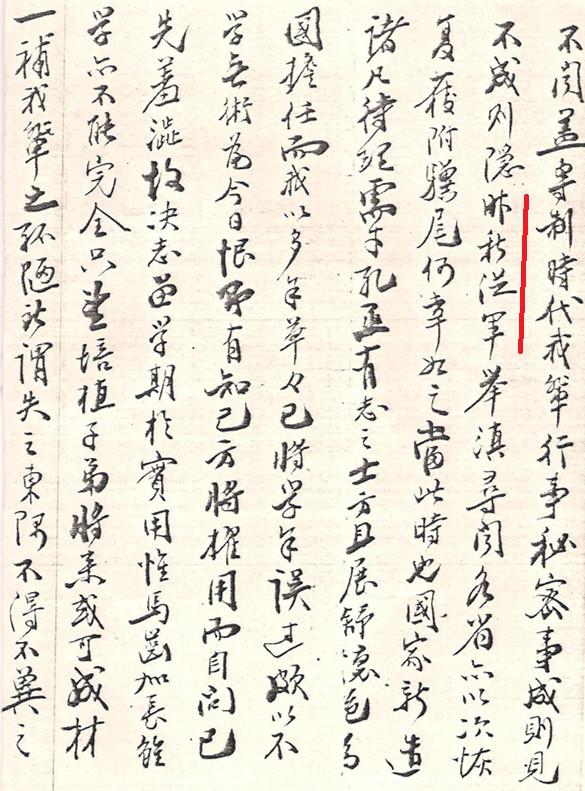 不聞蓋專制時代我輩行事秘密事成則見
不成則隱昨秋從軍舉滇尋聞各省亦以次恢
復獲附驥尾何幸如之當此時也國家新造
諸凡待理需才孔亟有志之士方且展舒懷抱為
國擔任而我以多年草々已將學年誤過頗以不
學無術為今日恨第有知己方將擢用而自問已
先羞澀故決志留學期於實用惟馬齒加長雖
學亦不能完全只望培植子弟將來或可成材
一補我輩之孤陋所謂失之東隅不得不冀之